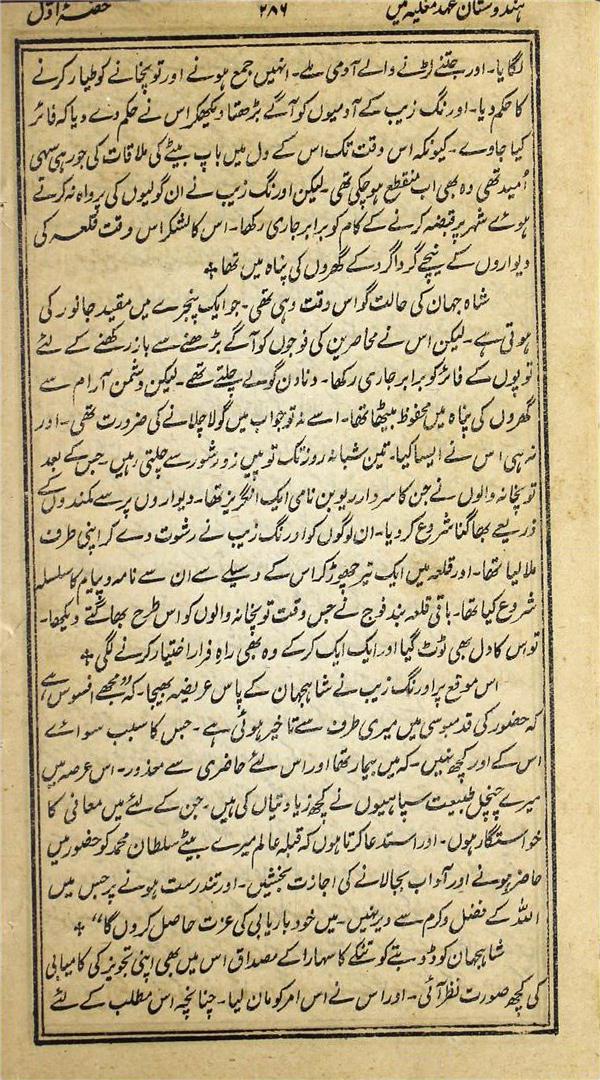 ہندوستان عہد مغلیہ میں ۲۸۶ حصۂ اول
لگایا۔ اور جتنے لڑنے والے آدمی ملے۔ انہیں جمع ہونے اور توپخانے کو طیار کرنے
کا حکم دیا۔ اورنگ زیب کے آدمیوں کو آگے بڑھتا دیکھکر اس نے حکم دے دیا کہ فائر
کیا جاوے۔ کیونکہ اس وقت تک اس کے دل میں باپ بیٹے کی ملاقات کی جو رہی سہی
اُمید تھی وہ بھی اب منقطع ہو چکی تھی۔ لیکن اورنگ زیب نے ان گولیوں کی پرواہ نہ کرتے
ہوئے شہر پر قبضہ کرنے کے کام کو برابر جاری رکھا۔ اس کا لشکر اس وقت قلعہ کی
دیواروں کے نیچے گرداگرد کے گھروں کی پناہ میں تھا ٭
شاہ جہان کی حالت گو اس وقت وہی تھی۔ جو ایک پنجرے میں مقید جانور کی
ہوتی ہے۔ لیکن اس نے محاصرین کی فوجوں کو آگے بڑھنے سے باز رکھنے کے لئے
توپوں کے فائر کو برابر جاری رکھا۔ دنادن گولے چلتے تھے۔ لیکن دشمن آرام سے
گھروں کی پناہ میں محفوظ بیٹھا تھا۔ اسے نہ تو جواب میں گولا چلانے کی ضرورت تھی۔ اور
نہ ہی اس نے ایسا کیا۔ تین شبانہ روز تک توپیں زور شور سے چلتی رہیں۔ جس کے بعد
توپخانہ والوں نے جن کا سردار ریوبن نامی ایک انگریز تھا۔ دیواروں پر سے کمندوں کے
ذریعے بھاگنا شروع کر دیا۔ ان لوگوں کو اورنگ زیب نے رشوت دے کر اپنی طرف
ملا لیا تھا۔ اور قلعہ میں ایک تیر چھوڑ کر اس کے وسیلے سے ان سے نامہ و پیام کا سلسلہ
شروع کیا تھا۔ باقی قلعہ بند فوج نے جس وقت توپخانہ والوں کو اس طرح بھاگتے دیکھا۔
تو اس کا دل بھی ٹوٹ گیا اور ایک ایک کر کے وہ بھی راہ فرار اختیار کرنے لگی ٭
اس موقع پر اورنگ زیب نے شاہجہان کے پاس عریضہ بھیجا۔ کہ ”مجھے افسوس ہے
کہ حضور کی قدمبوسی میں میری طرف سے تاخیر ہوئی ہے۔ جس کا سبب سوائے
اس کے اور کچھ نہیں۔ کہ میں بیمار تھا اور اس لئے حاضری سے معذور۔ اس عرصہ میں
میرے چنچل طبیعت سپاہیوں نے کچھ زیادتیاں کی ہیں۔ جن کے لئے میں معافی کا
خواستگار ہوں۔ اور استدعا کرتا ہوں کہ قبلہ عالم میرے بیٹے سلطان محمد کو حضور میں
حاضر ہونے اور آداب بجالانے کی اجازت بخشیں۔ اور تندرست ہونے پر جس میں
اللہ کے فضل و کرم سے دیر نہیں۔ میں خود باریابی کی عزت حاصل کروں گا“ ٭
شاہجہان کو ڈوبتے کو تنکے کا سہارا کے مصداق اس میں بھی اپنی تجویز کی کامیابی
کی کچھ صورت نظر آئی۔ اور اس نے اس امر کو مان لیا۔ چنانچہ اس مطلب کے لئے